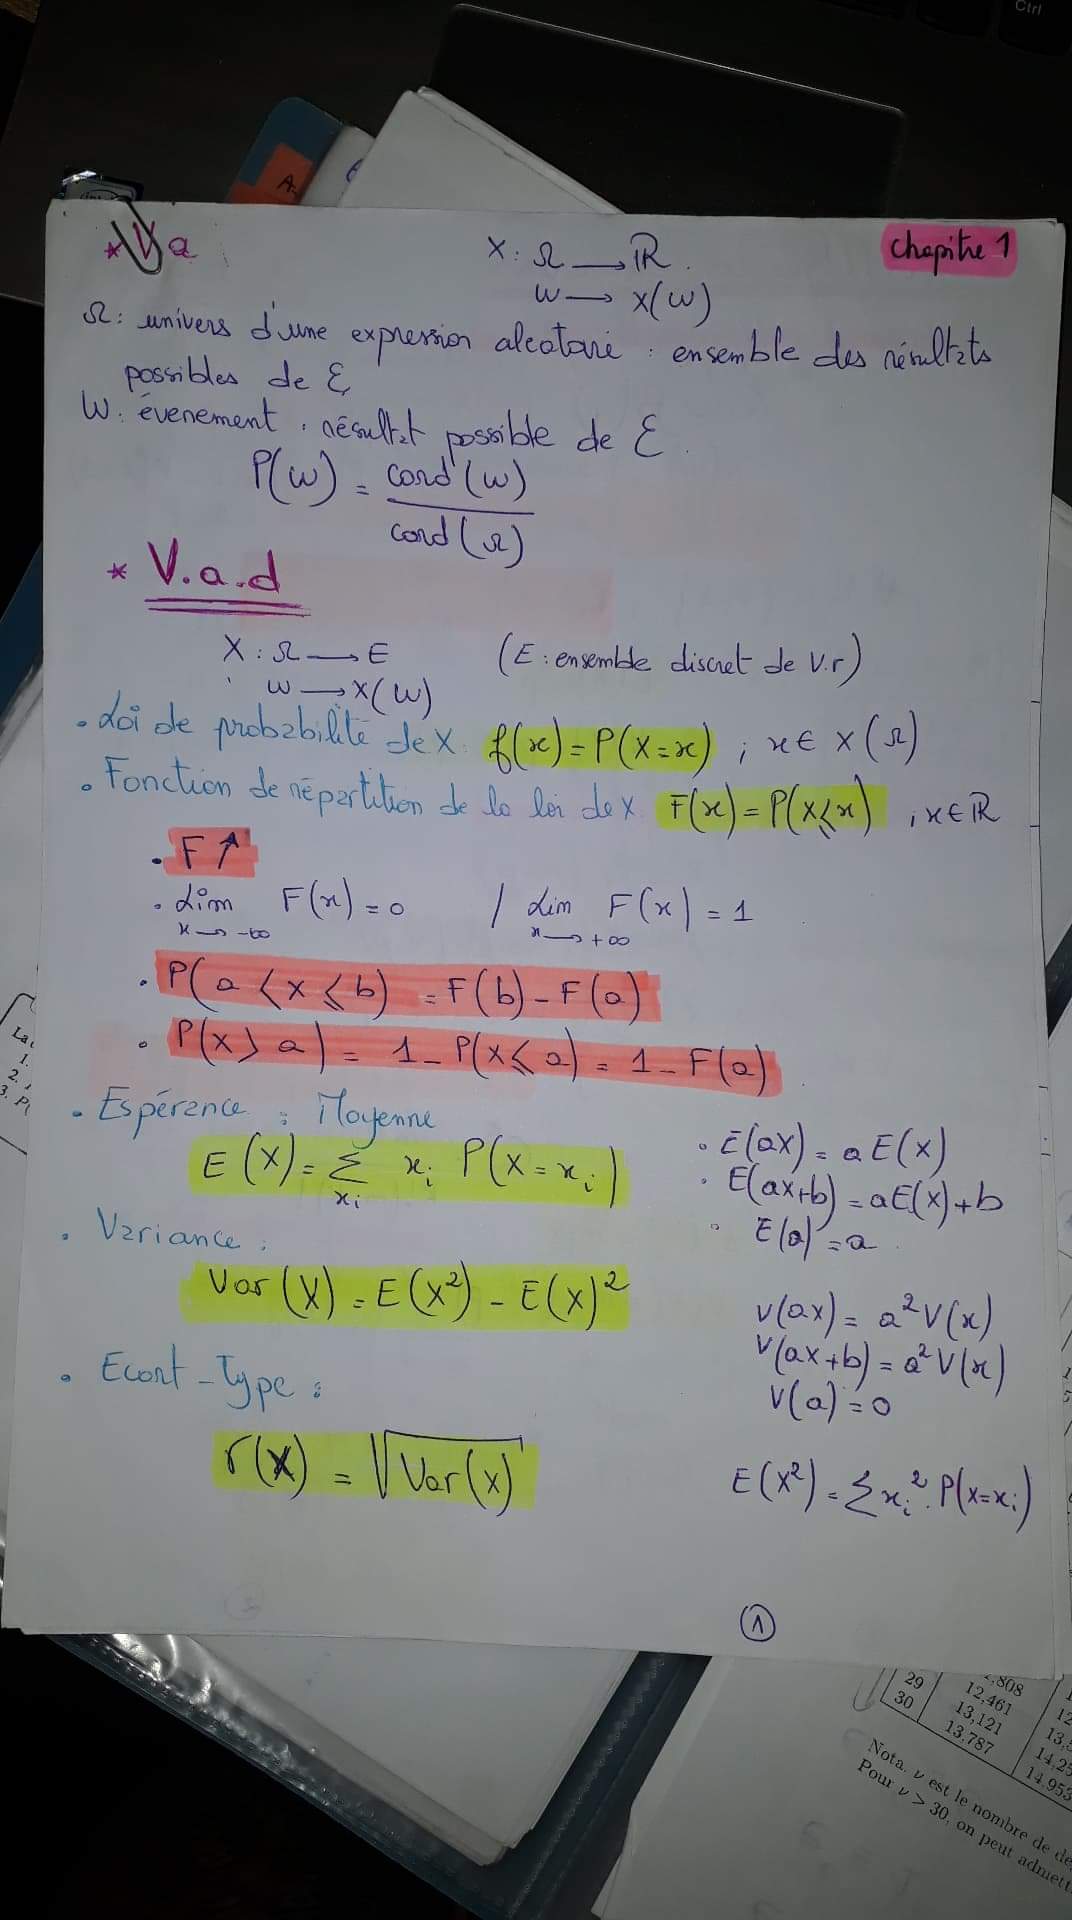 Ctrl
A-
* Va
X : Ω → ℝ
Chapitre 1
w → X(w)
Ω : univers d'une expression aléatoire : ensemble des résultats
possibles de ℰ
W : évenement : résultat possible de ℰ.
P(w) = card(w) / card(Ω)
* V.a.d
X : Ω → E (E : ensemble discret de V.r)
w → X(w)
• Loi de probabilité de X : f(x) = P(X=x) ; x ∈ X(Ω)
• Fonction de répartition de la loi de X F(x) = P(X⩽x) ; x ∈ ℝ
• F ↑
• Lim x→-∞ F(x) = 0 / Lim x→+∞ F(x) = 1
• P(a < X ⩽ b) = F(b) - F(a)
• P(X > a) = 1 - P(X ⩽ a) = 1 - F(a)
• Espérance : Moyenne
E(X) = Σ xi xi P(X = xi)
• E(aX) = a E(X)
• E(aX+b) = aE(X)+b
• E(a) = a.
• Variance :
Var(X) = E(X²) - E(X)²
V(aX) = a² V(x)
V(aX+b) = a² V(x)
V(a) = 0
• Ecart-Type :
σ(X) = √Var(X)
E(X²) = Σ xi². P(X=xi)
1
29
12,461
30
13,121
13,787
14,953
Nota. ν est le nombre de de
Pour ν > 30, on peut admett